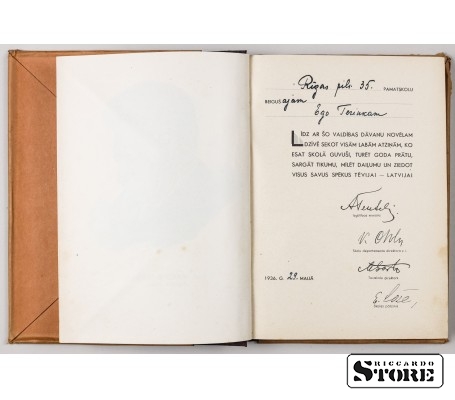 Rīgas pils. 35. PAMATSKOLU
BEIGUŠajam
Ego
LĪDZ AR ŠO VALDĪBAS DĀVANU NOVĒLAM
DZĪVĒ SEKOT VISĀM LABĀM ATZIŅĀM, KO
ESAT SKOLĀ GUVUŠI, TURĒT GODA PRĀTU,
SARGĀT TIKUMU, MĪLĒT DAIĻUMU UN ZIEDOT
VISUS SAVUS SPĒKUS TĒVIJAI – LATVIJAI
Izglītības ministrs
1936. G. 29. MAIJĀ
RICCARDO
STORE